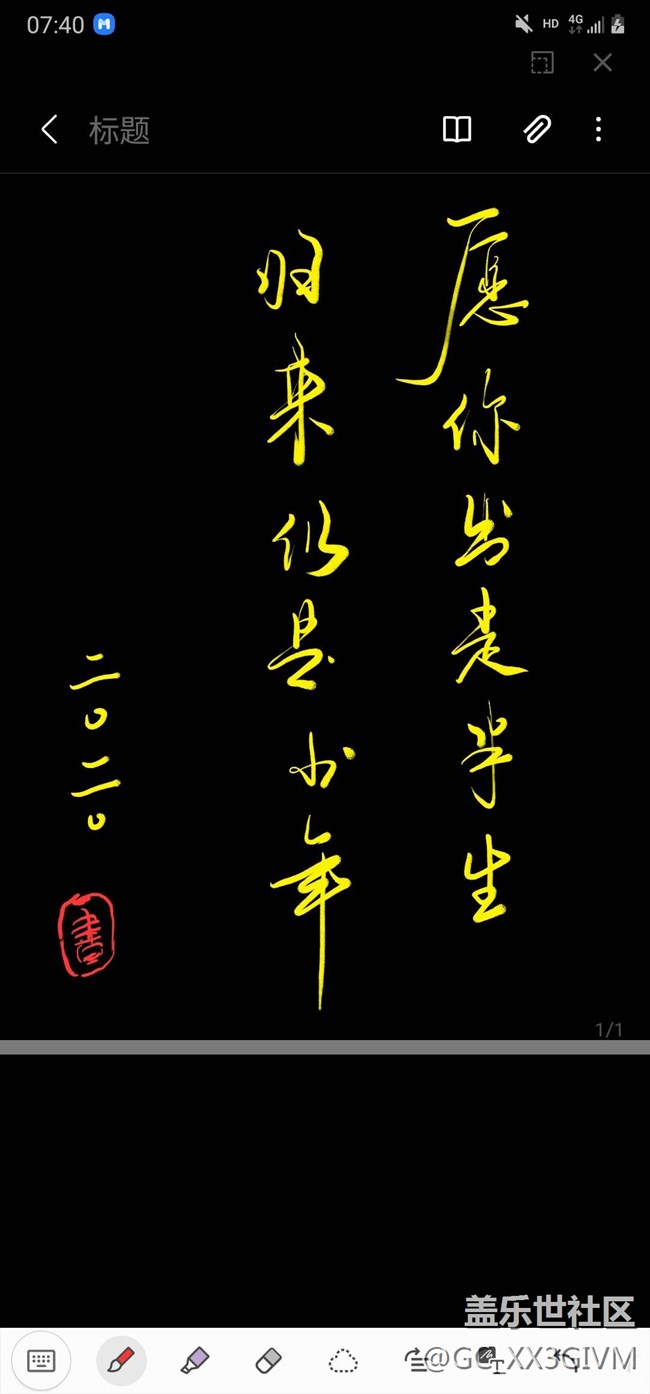 07:40
HD 4G
标题
愿你出走半生
归来仍是少年
二〇二〇
書
1/1
盖乐世社区